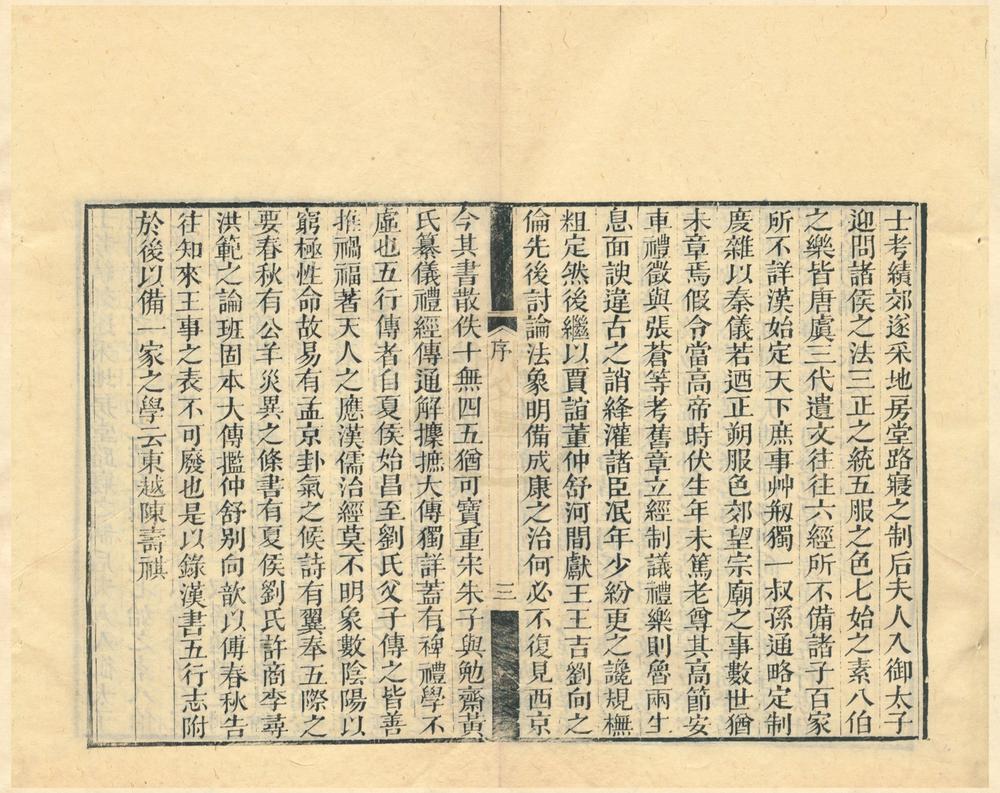 士考績郊遂采地房堂路寢之制后夫人入御太子
迎問諸侯之法三正之統五服之色七始之素八伯
之樂皆唐虞三代遺文往往六經所不備諸子百家
所不詳漢始定天下庶事艸剏獨一叔孫通略定制
度雜以秦儀若迺正朔服色郊望宗廟之事數世猶
未章焉假令當高帝時伏生年未篤老尊其高節安
車禮徵與張蒼等考舊章立經制議禮樂則魯兩生
息面諛違古之誚絳灌諸臣泯年少紛更之讒規橅
粗定然後繼以賈誼董仲舒河間獻王王吉劉向之
倫先後討論法象明備成康之治何必不復見西京
序
三
今其書散佚十無四五猶可寶重宋朱子與勉齋黃
氏纂儀禮經傳通解攈摭大傳獨詳蓋有裨禮學不
虛也五行傳者自夏侯始昌至劉氏父子傳之皆善
推禍福著天人之應漢儒治經莫不明象數陰陽以
窮極性命故易有孟京卦氣之候詩有翼奉五際之
要春秋有公羊災異之條書有夏侯劉氏許商李尋
洪範之論班固本大傳擥仲舒別向歆以傳春秋告
往知來王事之表不可廢也是以錄漢書五行志附
於後以備一家之學云東越陳壽祺